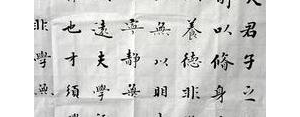 夫君子之
以脩身
養德非
無以明
寧靜無
遠夫學
也才須學
非學無